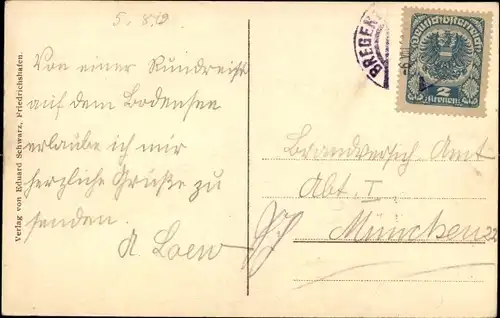 5. 8. 19
Von einer Rundreise
auf dem Bodensee
erlaube ich mir
herzliche Grüße zu
senden.
A. Loew
Verlag von Eduard Schwarz, Friedrichshafen.
BREGEN
Deutschösterreich
2
Kronen
Brandversich. Amt
Abt. I
München 22